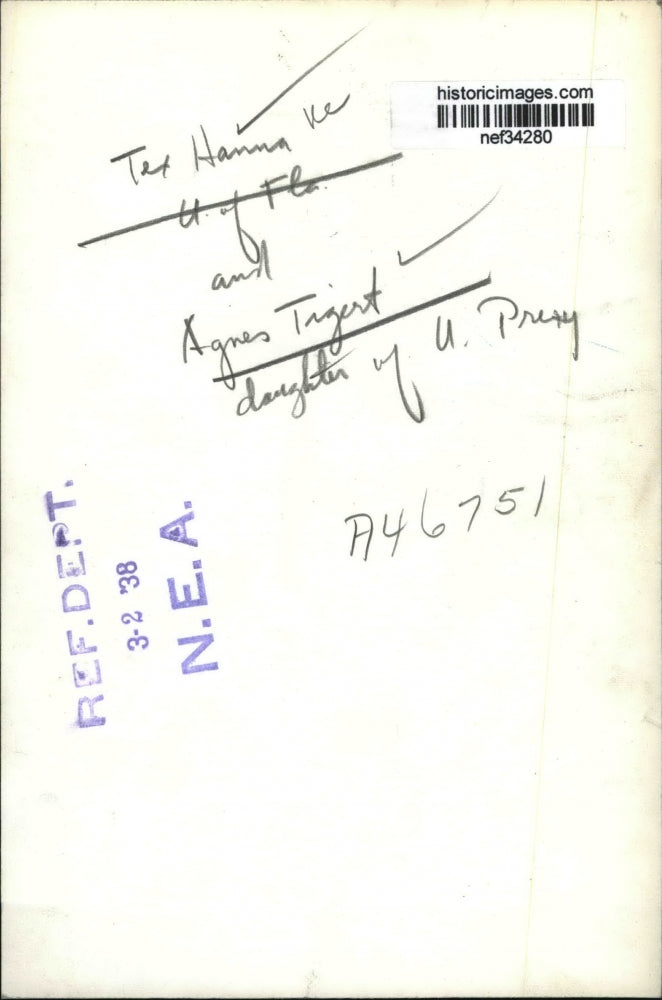 historicimages.com
nef34280
Tex Hanna
U. of Fla.
and
Agnes Tigert
daughter of U. Prexy
A46751
REF. DEPT.
3-2 '38
N.E.A.